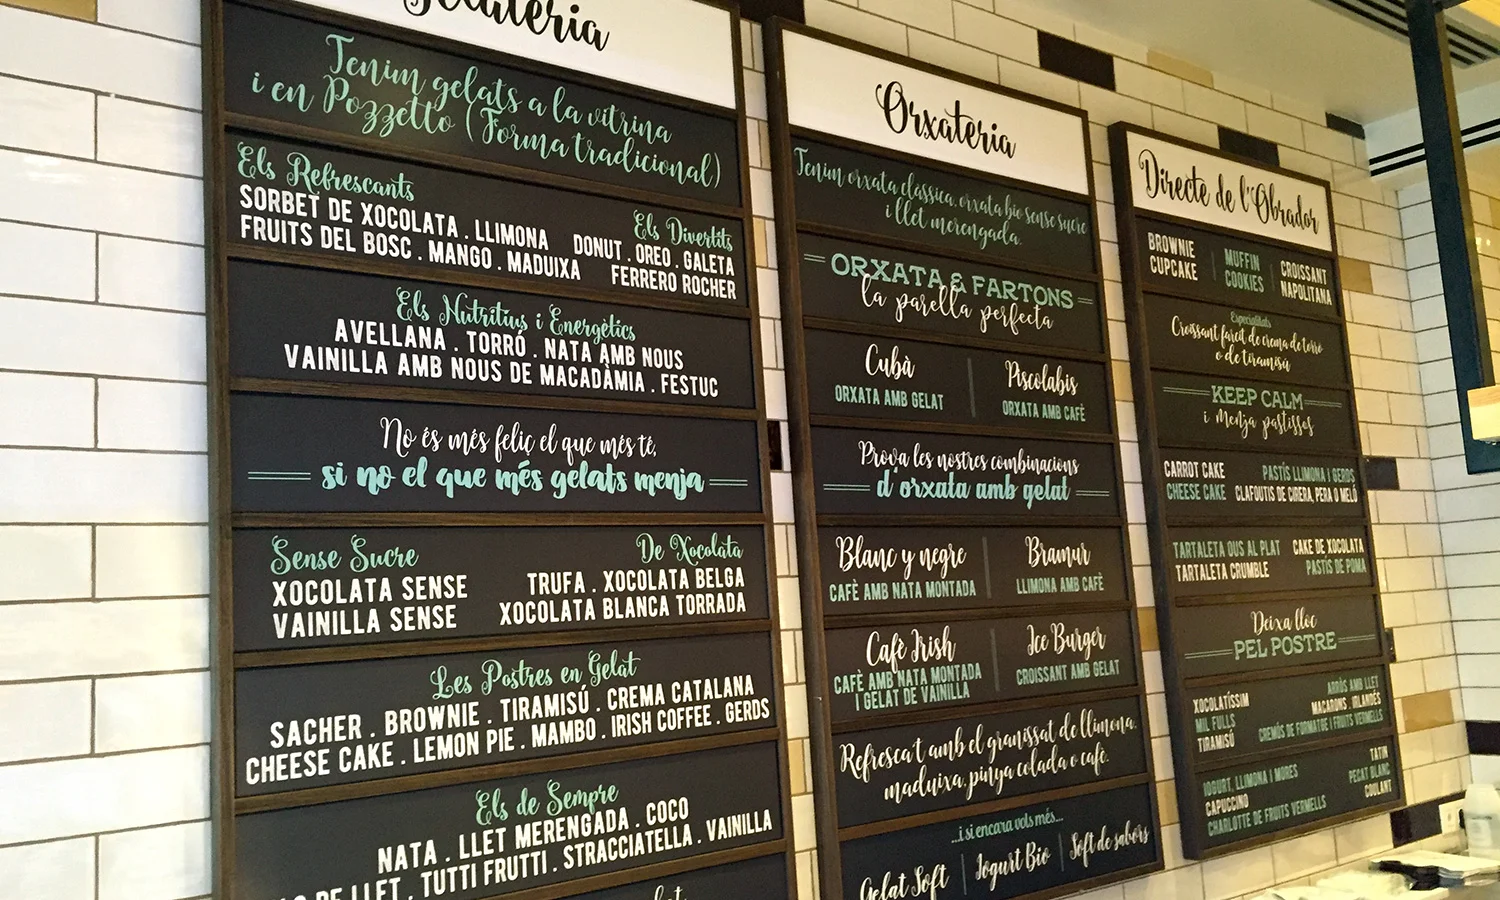 Gelateria
Tenim gelats a la vitrina
i en Pozzetto (Forma tradicional)
Els Refrescants
SORBET DE XOCOLATA . LLIMONA
FRUITS DEL BOSC . MANGO . MADUIXA
Els Divertits
DONUT . OREO . GALETA
FERRERO ROCHER
Els Nutritius i Energètics
AVELLANA . TORRÓ . NATA AMB NOUS
VAINILLA AMB NOUS DE MACADÀMIA . FESTUC
No és més feliç el que més té,
si no el que més gelats menja
Sense Sucre
XOCOLATA SENSE
VAINILLA SENSE
De Xocolata
TRUFA . XOCOLATA BELGA
XOCOLATA BLANCA TORRADA
Les Postres en Gelat
SACHER . BROWNIE . TIRAMISÚ . CREMA CATALANA
CHEESE CAKE . LEMON PIE . MAMBO . IRISH COFFEE . GERDS
Els de Sempre
NATA . LLET MERENGADA . COCO
DE LLET . TUTTI FRUTTI . STRACCIATELLA . VAINILLA
Orxateria
Tenim orxata clàssica, orxata bio sense sucre
i llet merengada.
ORXATA & FARTONS
la parella perfecta
Cubà
ORXATA AMB GELAT
Piscolabis
ORXATA AMB CAFÈ
Prova les nostres combinacions
d'orxata amb gelat
Blanc y negre
CAFÈ AMB NATA MONTADA
Bramur
LLIMONA AMB CAFÈ
Cafè Irish
CAFÈ AMB NATA MONTADA
I GELAT DE VAINILLA
Ice Burger
CROISSANT AMB GELAT
Refresca't amb el granissat de llimona,
maduixa, pinya colada o cafè.
...i si encara vols més...
Gelat Soft
Iogurt Bio
Soft de sabors
Directe de l'Obrador
BROWNIE
CUPCAKE
MUFFIN
COOKIES
CROISSANT
NAPOLITANA
Especialitats
Croissant farcit de crema de torró
o de tiramisú
KEEP CALM
i menja pastissos
CARROT CAKE
CHEESE CAKE
PASTÍS LLIMONA I GERDS
CLAFOUTIS DE CIRERA, PERA O MELÓ
TARTALETA OUS AL PLAT
TARTALETA CRUMBLE
CAKE DE XOCOLATA
PASTÍS DE POMA
Deixa lloc
PEL POSTRE
XOCOLATÍSSIM
MIL FULLS
TIRAMISÚ
ARRÒS AMB LLET
MACARONS . IRLANDÉS
CREMÓS DE FORMATGE I FRUITS VERMELLS
IOGURT, LLIMONA I MORES
CAPUCCINO
CHARLOTTE DE FRUITS VERMELLS
TATIN
PECAT BLANC
COULANT